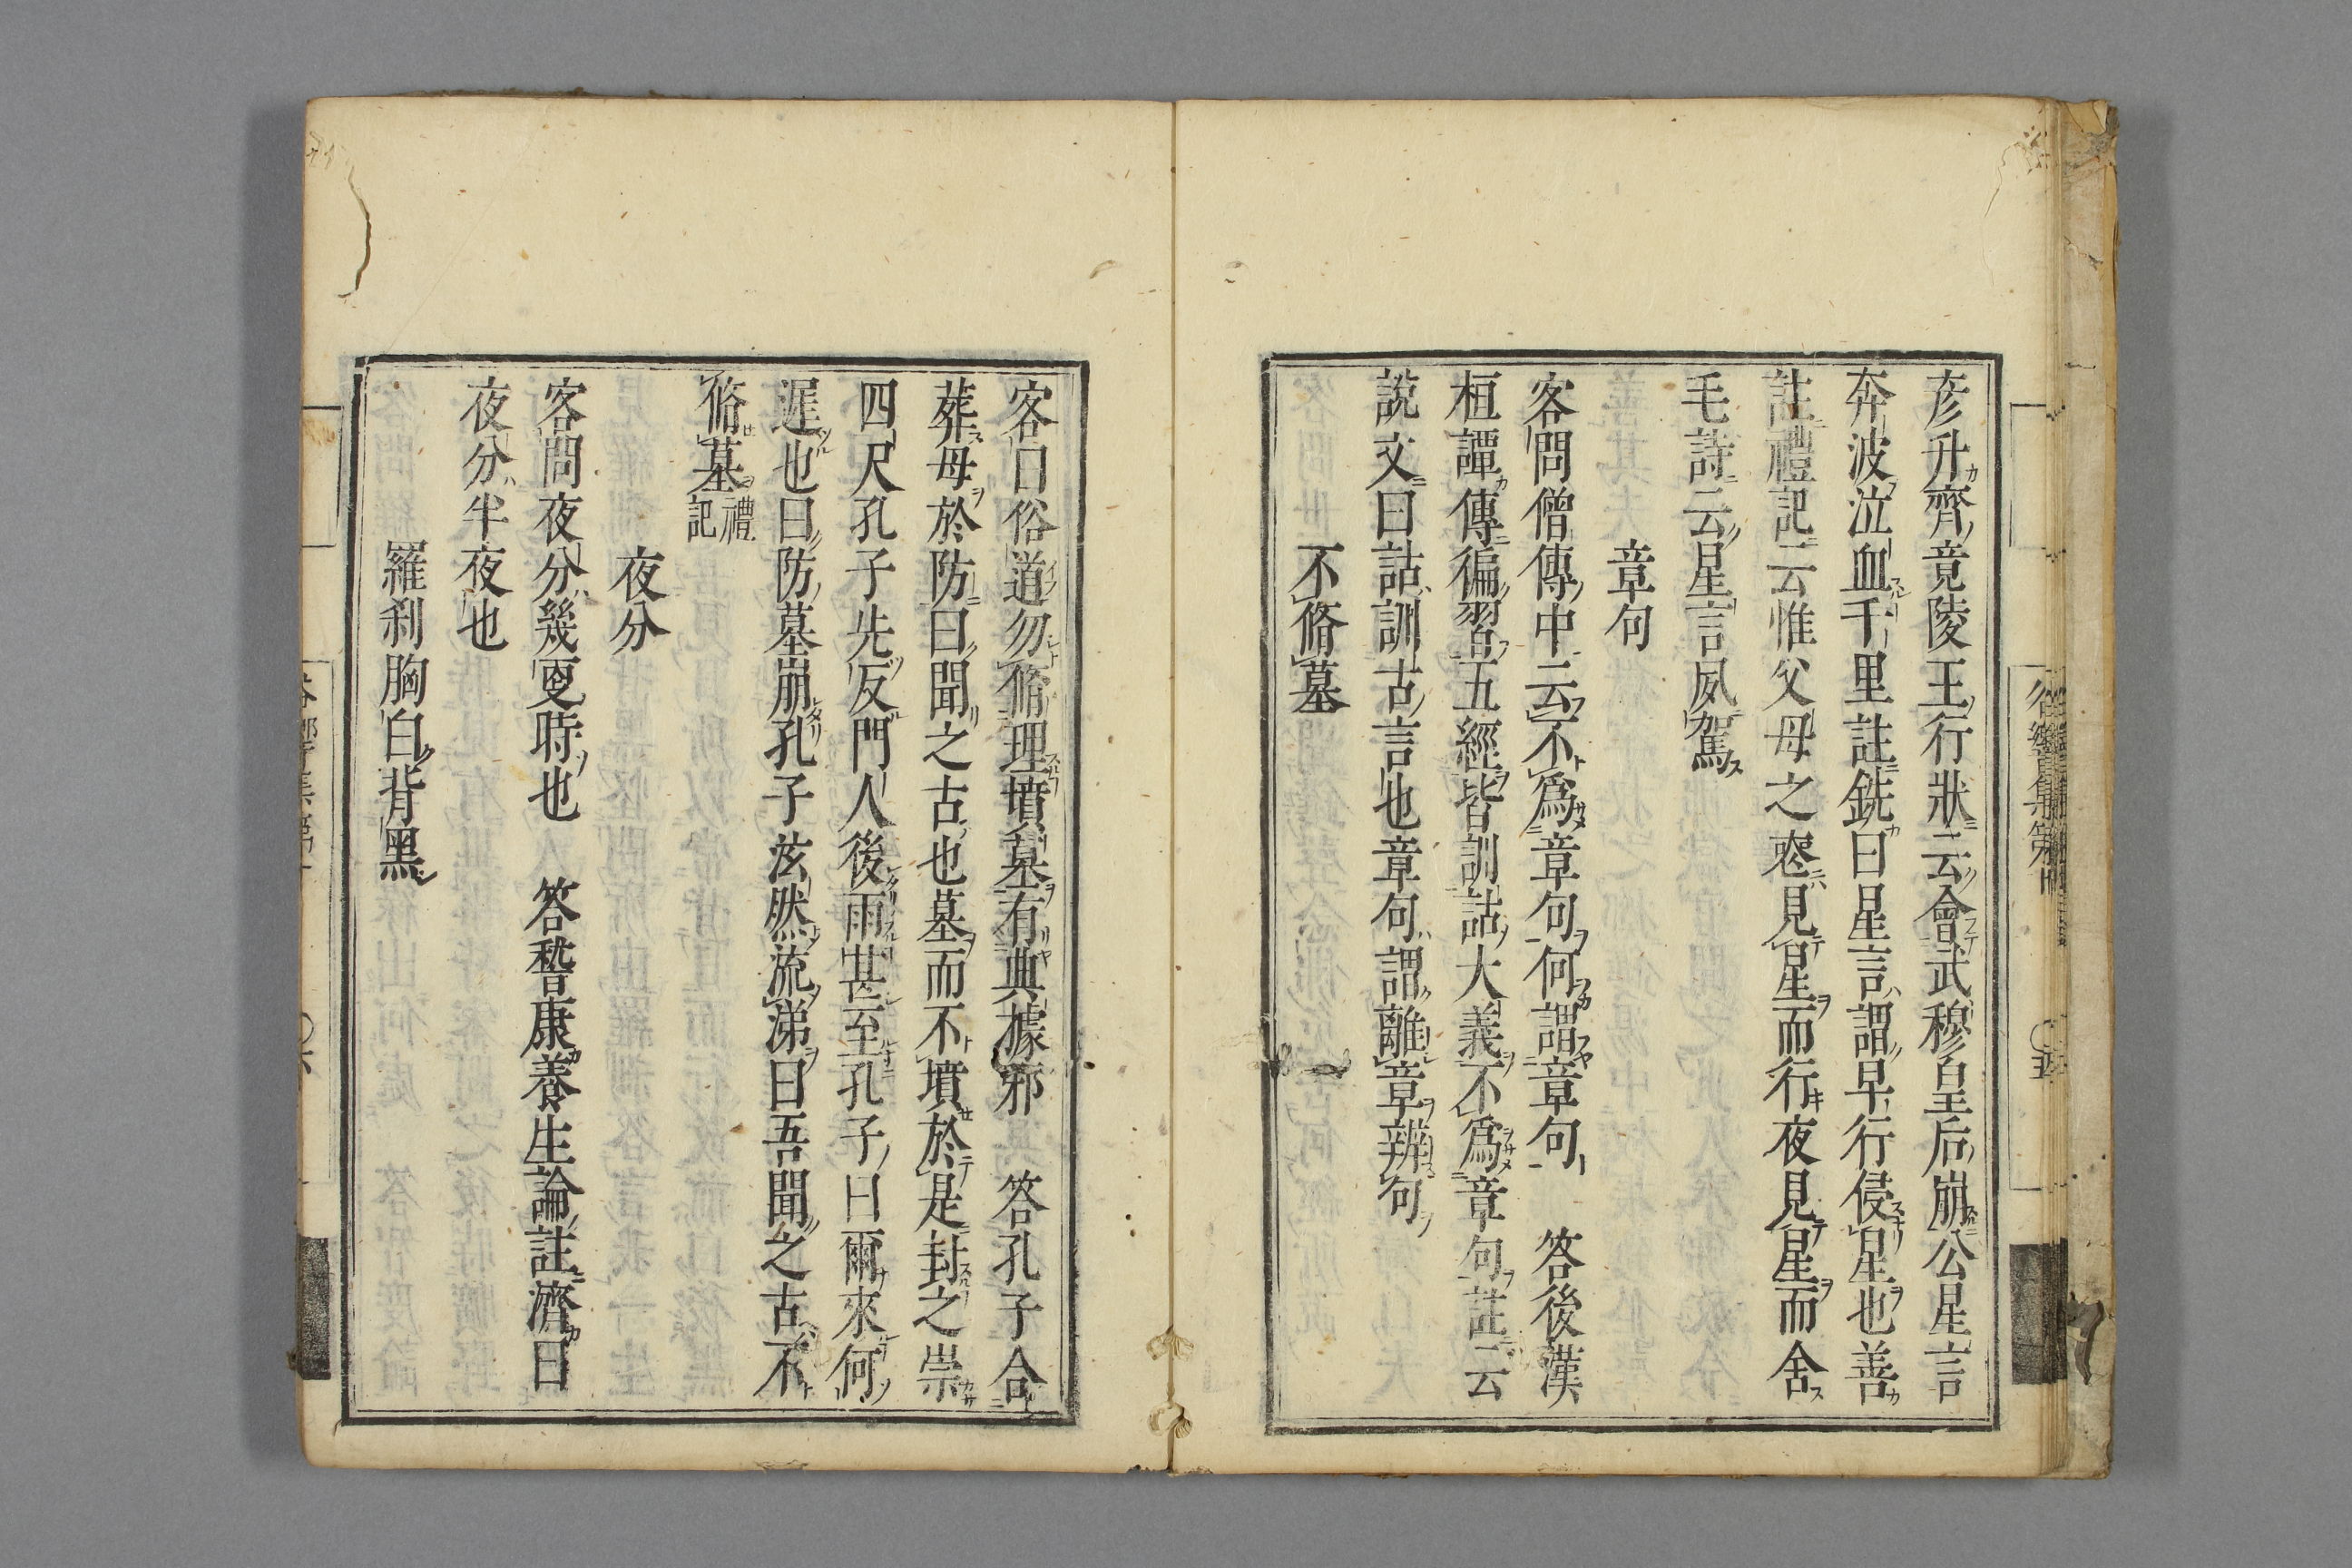 彦升齊竟陵王行狀云會武穆皇后崩公星言
奔波泣血千里註銑曰星言謂早行侵星也善
註禮記云惟父母之䘮見星而行夜見星而舍
毛詩云星言夙駕
章句
客問僧傳中云不爲章句何謂章句 答後漢
桓譚傳徧習五經皆訓詁大義不爲章句註云
說文曰詁訓古言也章句謂離章辨句
不脩墓
客曰俗道勿脩理墳墓有典據邪 答孔子合
葬母於防曰聞之古也墓而不墳於是封之崇
四尺孔子先反門人後雨甚至孔子曰爾來何
遲也曰防墓崩孔子泫然流涕曰吾聞之古不
脩墓禮記
夜分
客問夜分幾更時也 答嵇康養生論註濟曰
夜分半夜也
羅刹胸白背黑